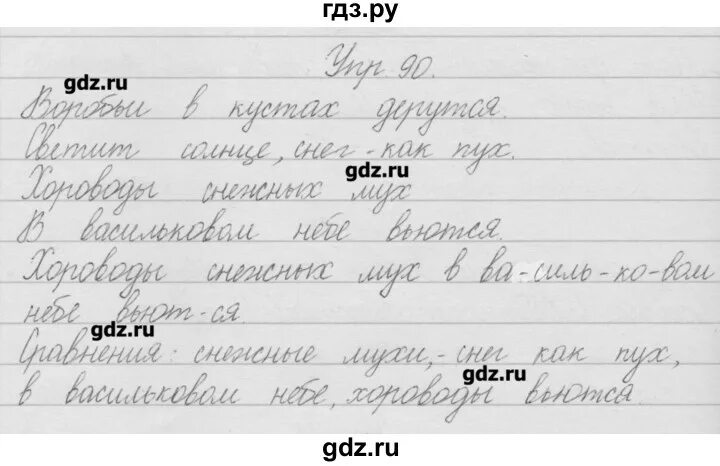 гдз.ру
Упр 90.
gdz.ru
Воробьи в кустах дерутся.
Светит солнце, снег - как пух.
gdz.ru
Хороводы снежных мух
В васильковом небе вьются.
Хороводы снежных мух в ва-силь-ко-вом
небе вьют-ся.
gdz.ru
Сравнения: снежные мухи, - снег как пух,
gdz.ru
в васильковом небе, хороводы вьются.
gdz.ru